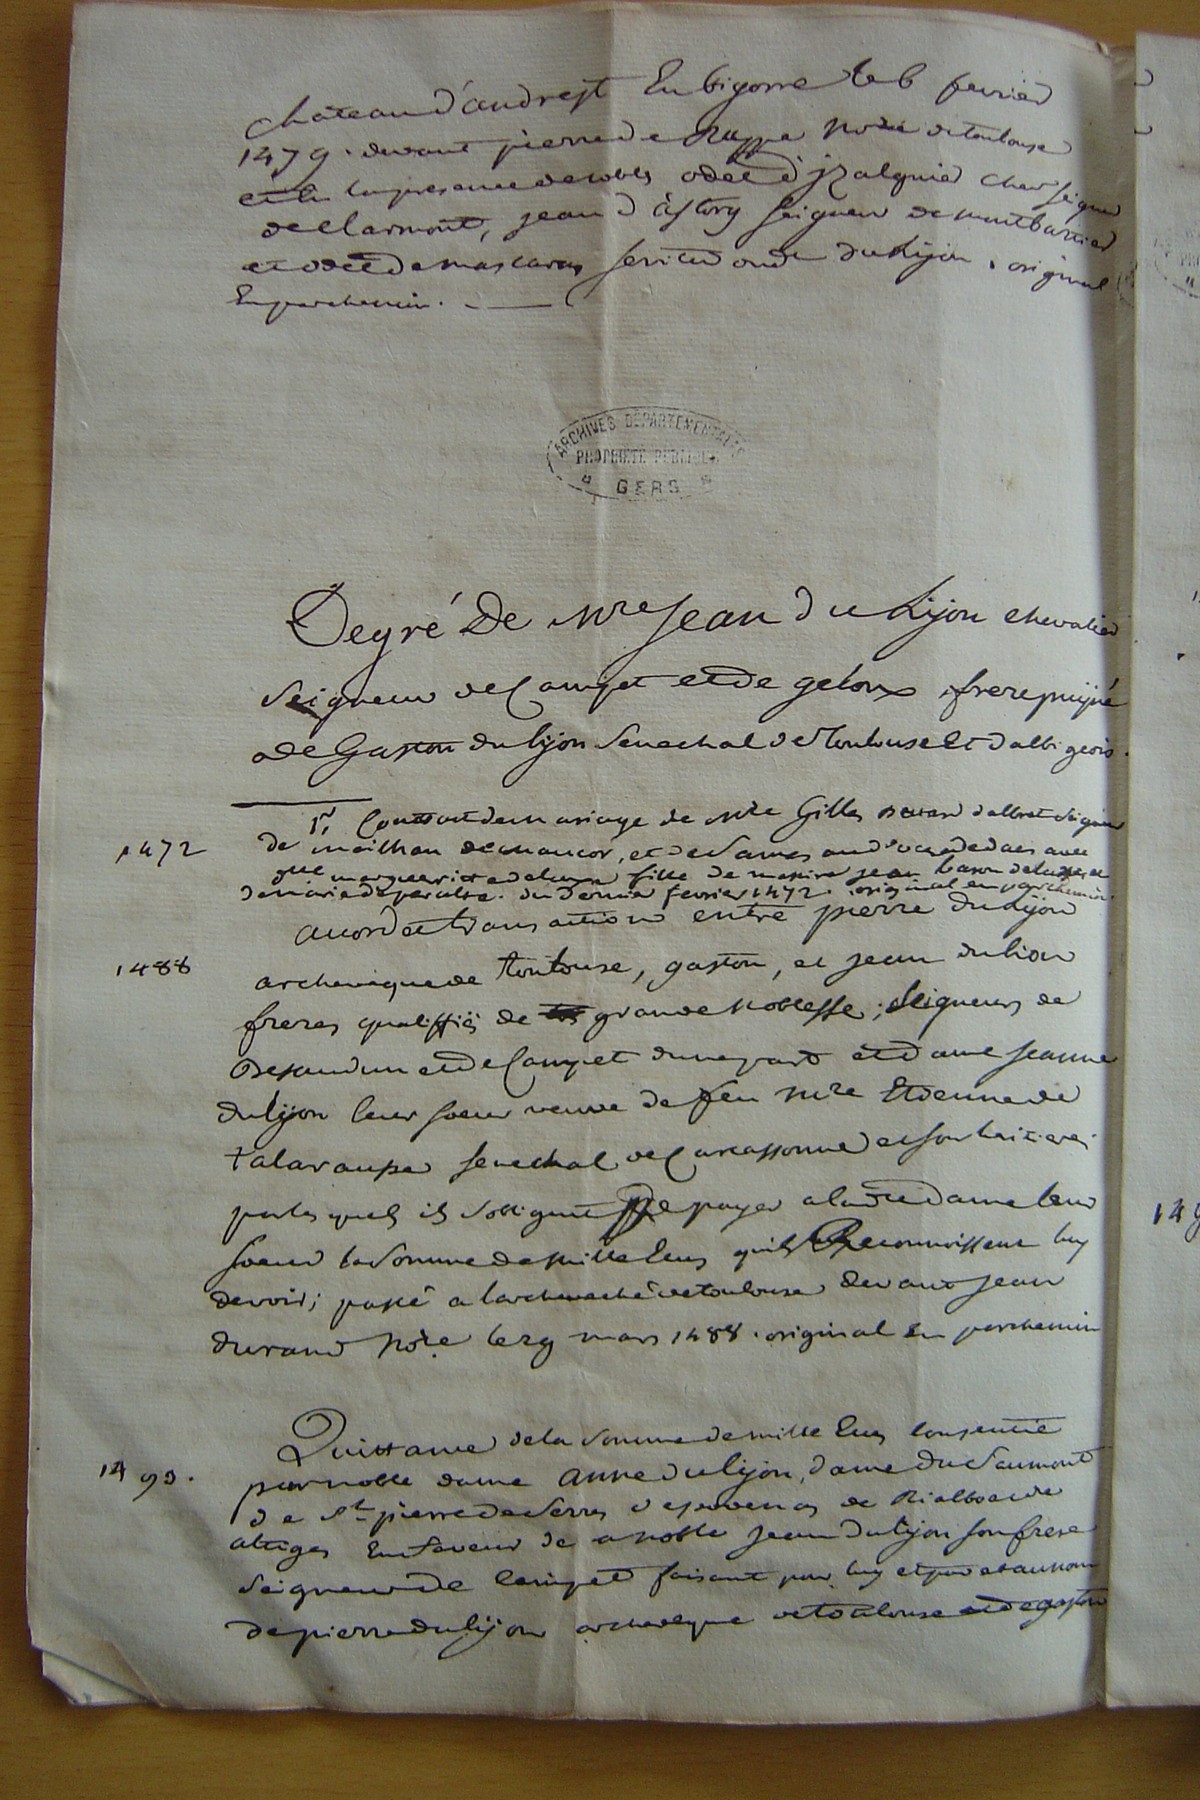 chateau d'andrest En bigorre le 6 fevrier
1479. devant pierre de Nore de toulouse
et en la presence de nobles odet d'jzalguier cher seigneur
de Clarmont, jean d'astorg seigneur de montbartier
et odet de mascaras serviteur du Lyon, original
En parchemin.
ARCHIVES DÉPARTEMENTALES
PROPRIÉTÉ PUBLIQUE
GERS
Degré De Mre Jean du Lyon chevalier
Seigneur de Campet et de geloux frere puisné
de Gaston du lyon Senechal de Toulouse et d'albigeois.
1472
1r, Contrat de mariage de Mre Gilles d'albret Seigneur
de meilhan de maucor, et de Sames avec
marguerite fille de messire jean baron
de marie d'esparatre. du dernier fevrier 1472. original en parchemin
1488
acord et transaction entre pierre du Lyon
archeveque de toulouse, gaston, et jean du lion
freres qualiffiés de grande noblesse; Seigneurs de
Besaudun et de Campet d'une part et dame jeanne
du lyon leur soeur veuve de feu Mre Etienne de
talaraupe senechal de Carcassonne et son heritiere
par lesquels ils s'obligent de payer a ladite dame leur
soeur la somme de mille Ecus qu'ils Reconnoissent luy
devoir; passé a l'archeveché de toulouse devant jean
durand Nore le 29 mars 1488. original En parchemin
1493.
Quittance de la somme de mille Ecus consentie
par noble dame anne du lyon, dame du Saumont
de St pierre de Serres de
En faveur de noble jean du lyon son frere
Seigneur de Campet faisant pour luy et pour et au nom
de pierre du lyon archeveque de toulouse et de gaston
149